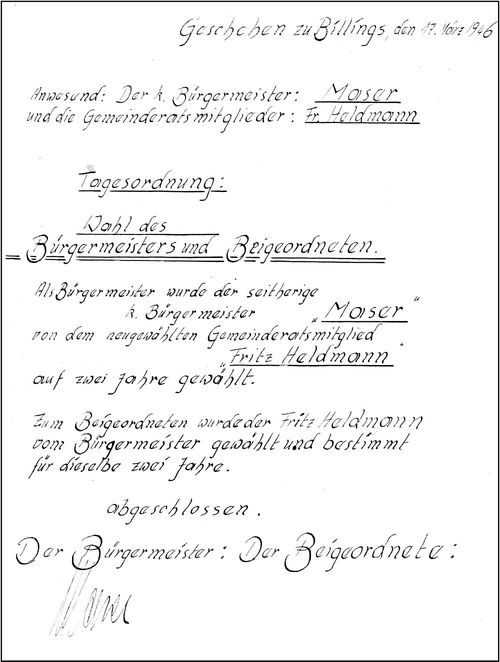 Geschehen zu Billings, den 17. März 1946
Anwesend: Der k. Bürgermeister: Maser
und die Gemeinderatsmitglieder: Fr. Heldmann
Tagesordnung:
Wahl des
Bürgermeisters und Beigeordneten.
Als Bürgermeister wurde der seitherige
k. Bürgermeister „Maser“
von dem neugewählten Gemeinderatsmitglied
„Fritz Heldmann“
auf zwei Jahre gewählt.
Zum Beigeordneten wurde der Fritz Heldmann
vom Bürgermeister gewählt und bestimmt
für dieselbe zwei Jahre.
abgeschlossen.
Der Bürgermeister: Der Beigeordnete:
Maser